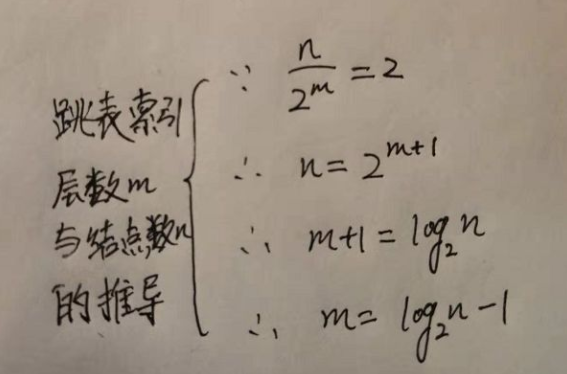 跳表索引
层数m
与结点数n
的推导
∵ n/2^m = 2
∴ n = 2^{m+1}
∴ m+1 = log₂n
∴ m = log₂n - 1